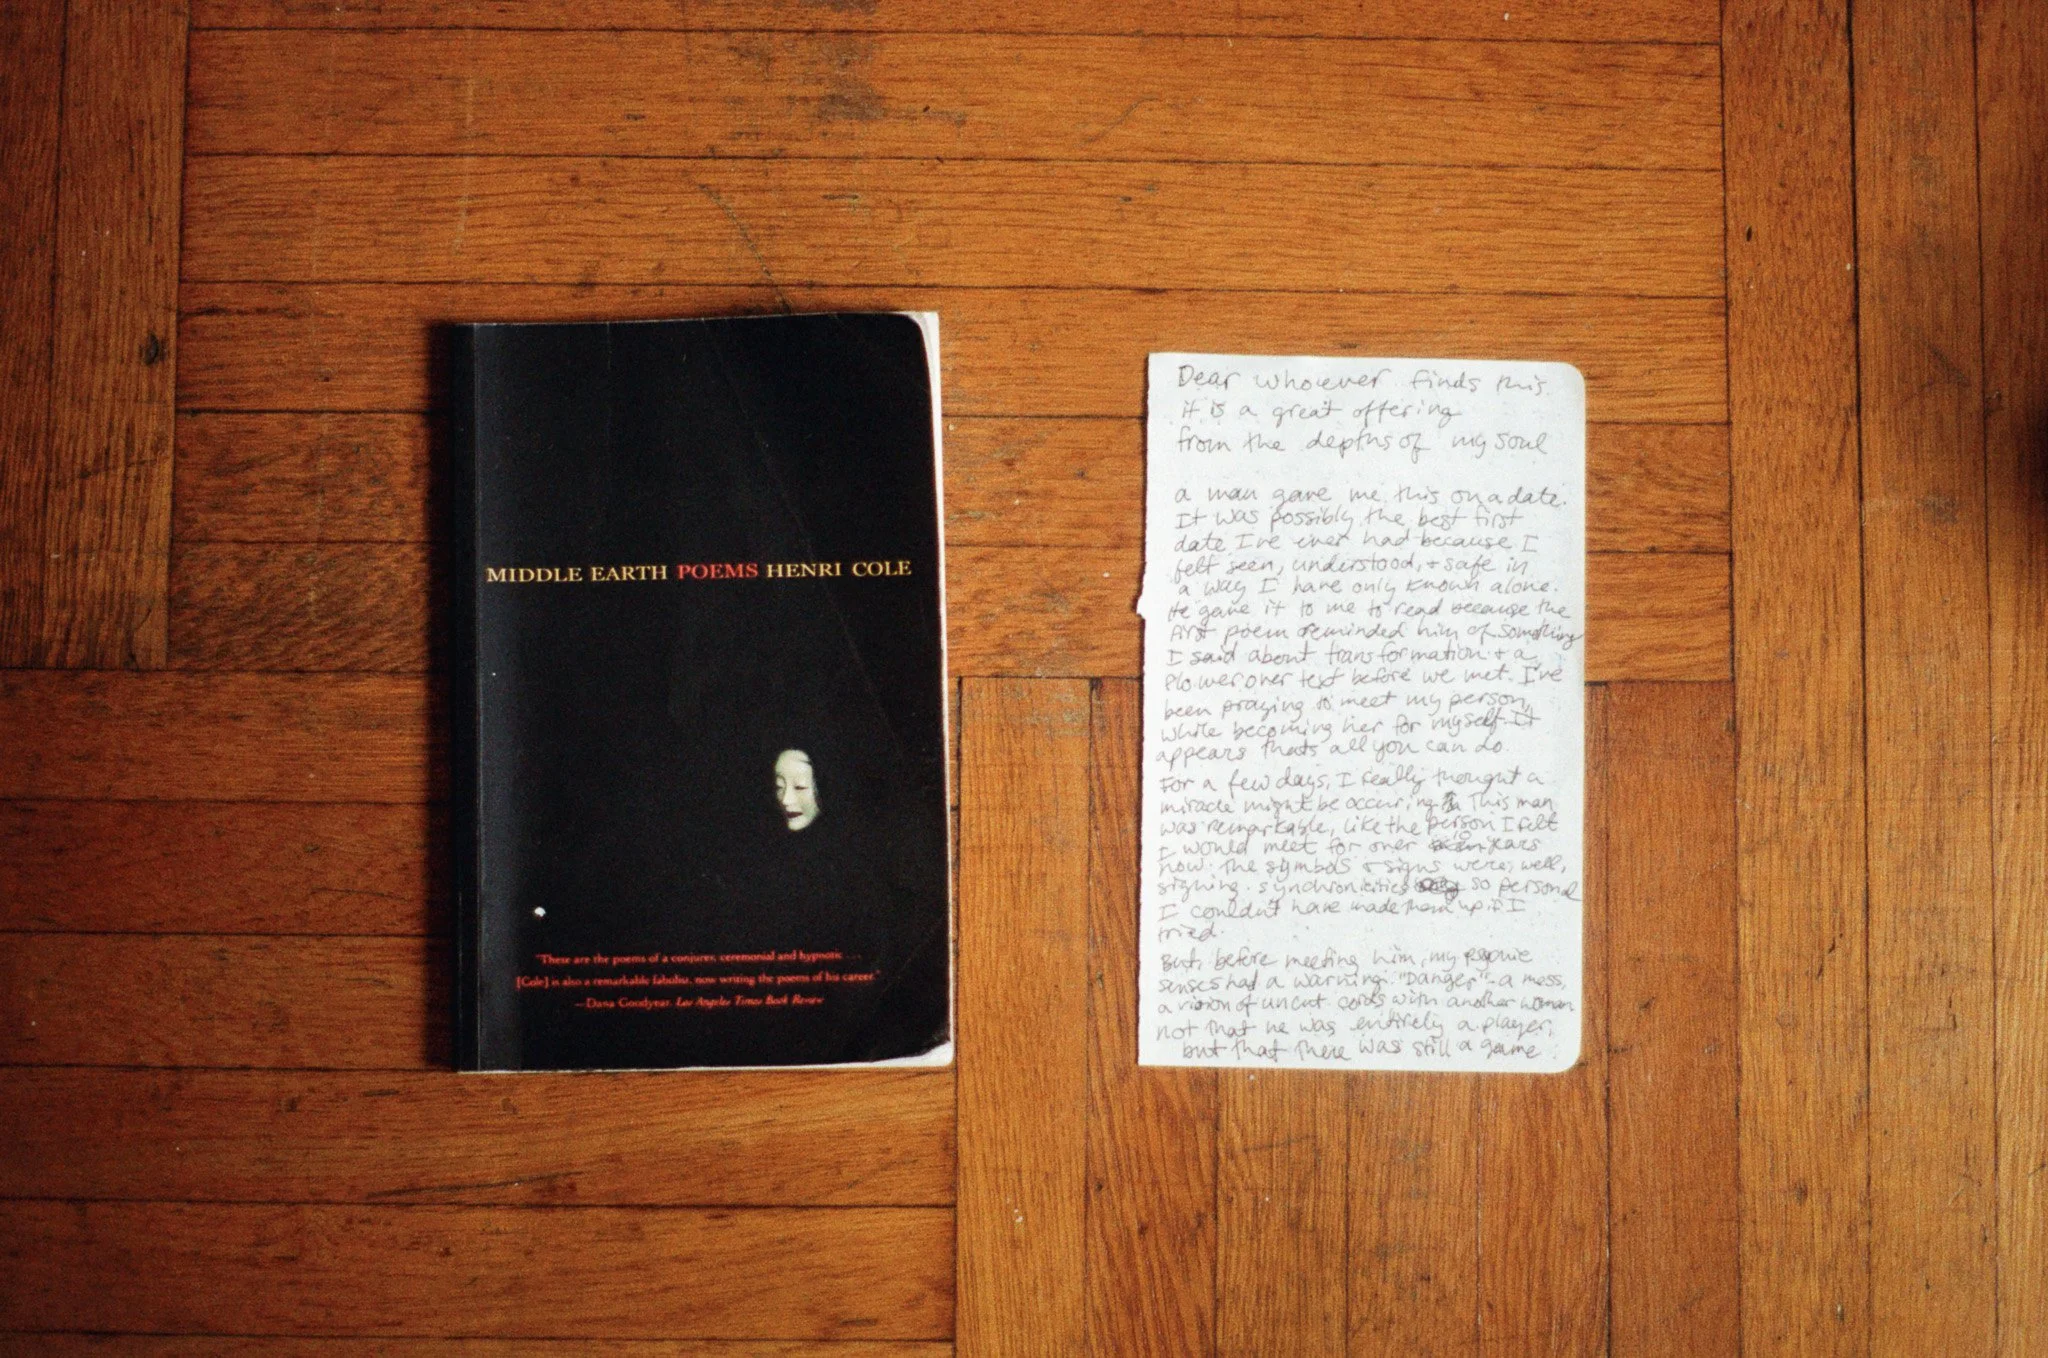 MIDDLE EARTH POEMS HENRI COLE
"These are the poems of a conjurer, ceremonial and hypnotic . . .
[Cole] is also a remarkable fabulist, now writing the poems of his career."
—Dana Goodyear, Los Angeles Times Book Review
Dear whoever finds this
it is a great offering
from the depths of my soul
a man gave me this on a date.
It was possibly the best first
date I've ever had because I
felt seen, understood, + safe in
a way I have only known alone.
He gave it to me to read because the
first poem reminded him of something
I said about transformation + a
flower over text before we met. I've
been praying to meet my person,
while becoming her for myself. It
appears thats all you can do.
For a few days, I really thought a
miracle might be occuring. This man
was remarkable, like the person I felt
I would meet for over 10 years
now. The symbols + signs were, well,
signing. synchronicities so personal
I couldn't have made them up if I
tried.
But, before meeting him, my psychic
senses had a warning: "Danger" - a mess,
a vision of uncut cords with another woman
not that he was entirely a player,
but that there was still a game